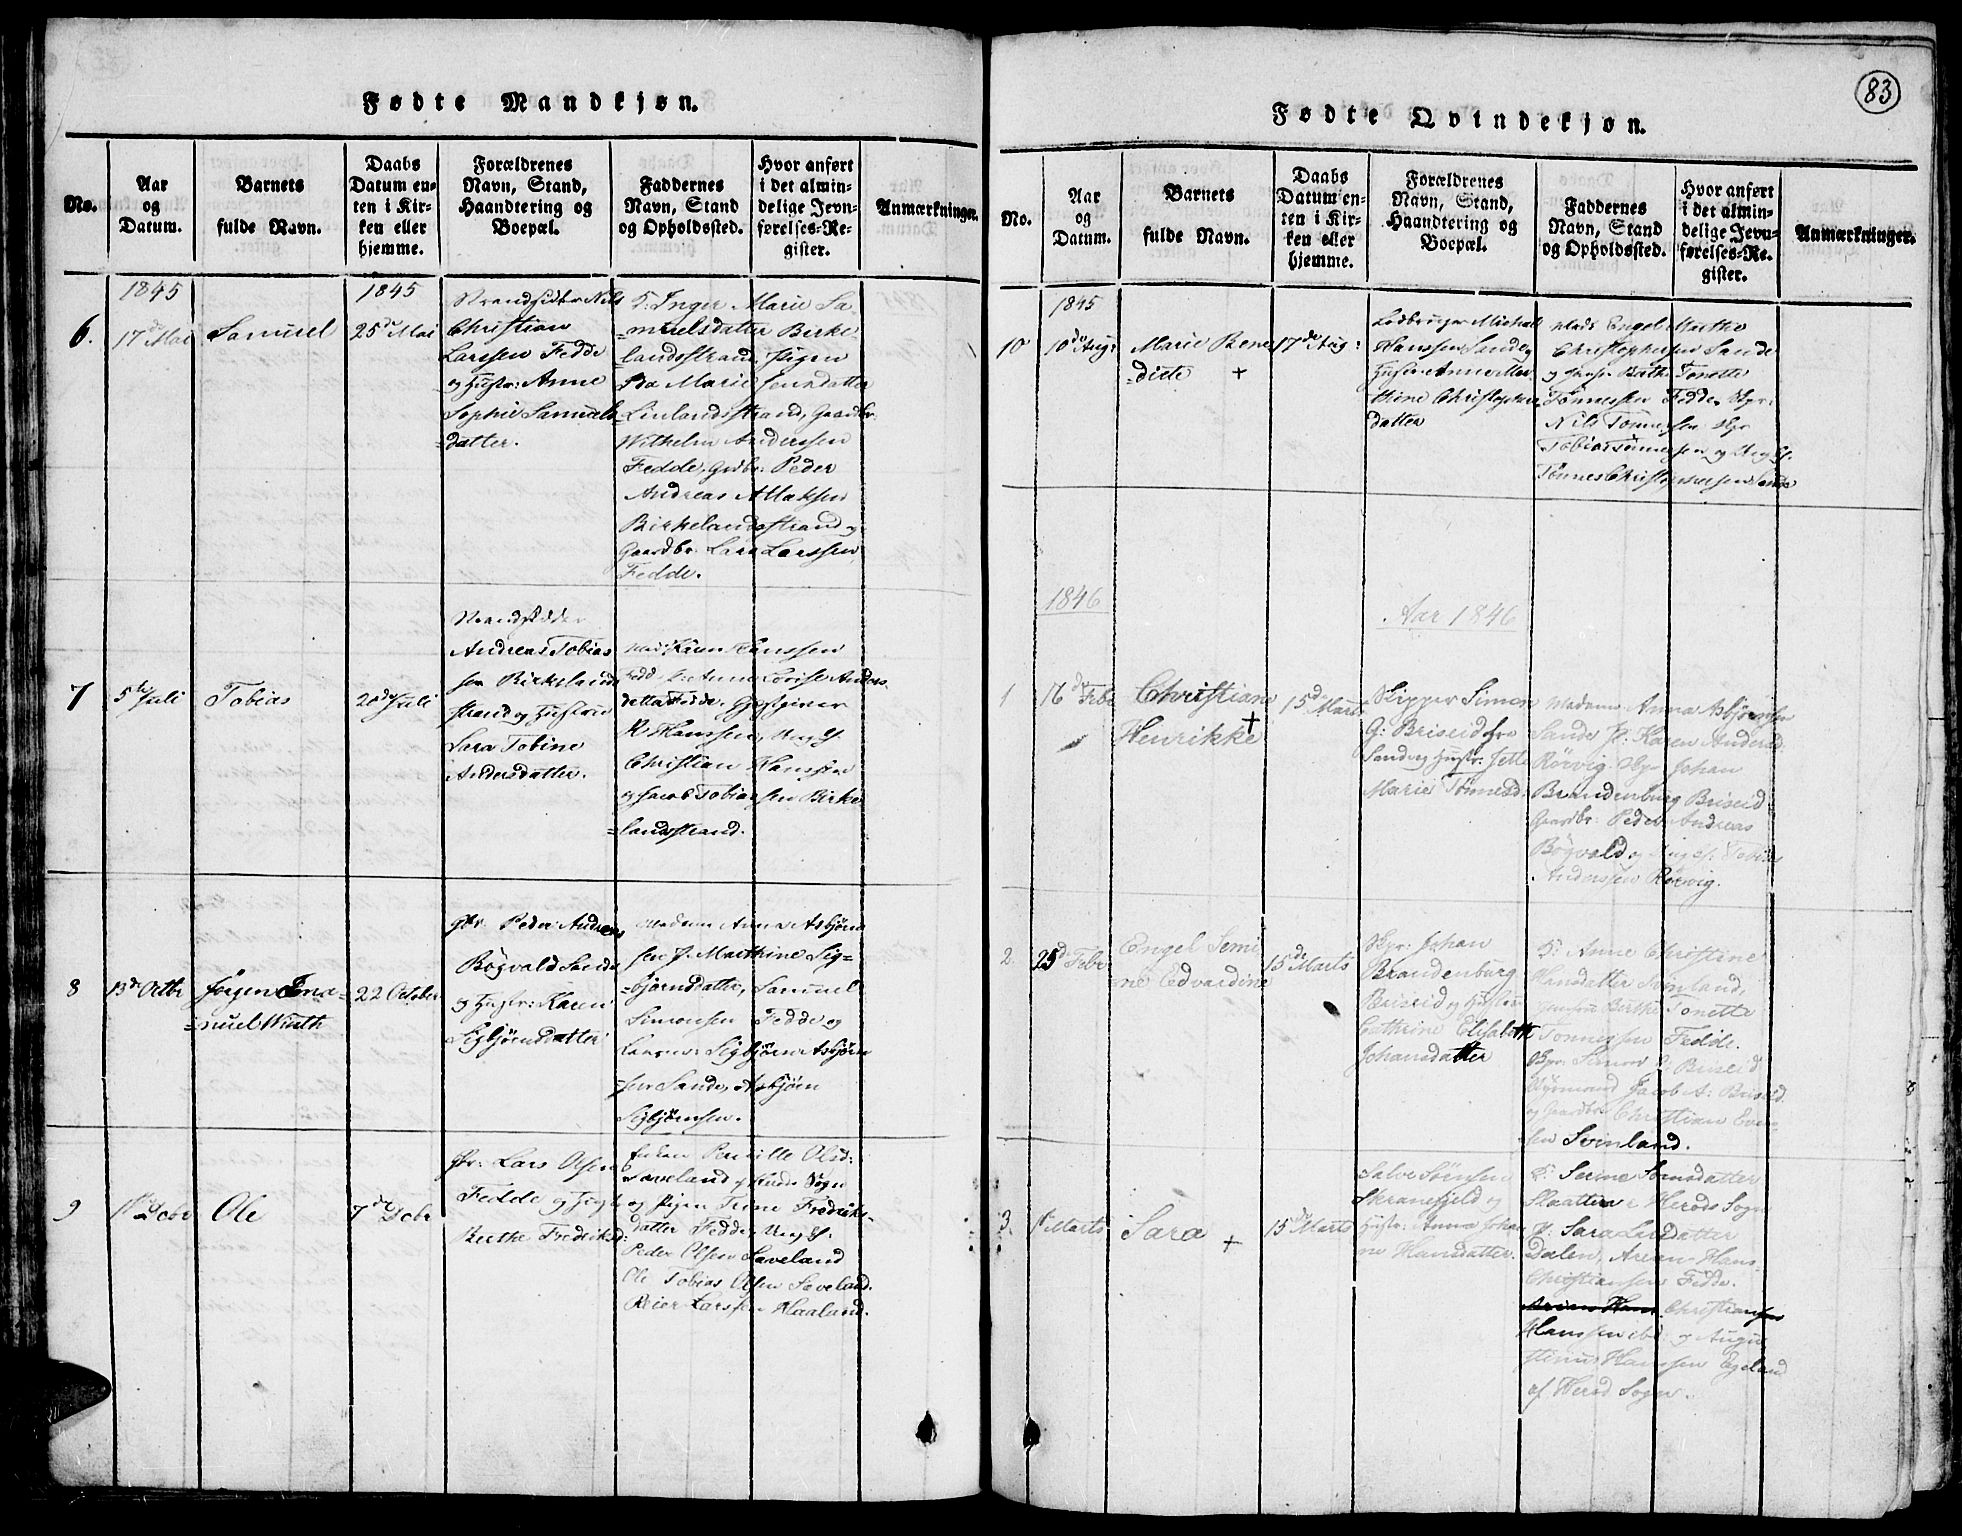 Fødte Mandkjøn.
No.
Aar
og
Datum.
Barnets
fulde Navn.
Daabs
Datum en-
ten i Kir-
ken eller
hjemme.
Forældrenes
Navn, Stand,
Haandtering og
Boepæl.
Faddernes
Navn, Stand
og Opholdssted.
Hvor anført
i det almin-
delige Jevn-
førelses-Re-
gister.
Anmærkninger.
1845
1845
6.
17de Mai
Samuel
25de Mai
Strandsidder Nils
Christian
Larssen Fedde
og Hustr: Anne
Sophie Samuels
=datter.
F: Inger Marie Sa-
=muelsdatter Birke
=landsstrand, Pigen
Ida Marie Jensdatter
Linlandsstrand, Gaardbr.
Wilhelm Anderssen
Fedde, Grdbr: Peder
Andreas Atlaksen
Birkelandsstrand og
Gaardbr: Lars Larssen
Fedde.
7
5te Juli
Tobias
20de Juli
Strandsidder
Andreas Tobias
sen Birkelands
strand og Hustru
Sara Tobine
Andersdatter.
Mad: Karen Hanssen
Fedde Anne Lovise Anders
datter Fedde, Gjestgiver
R Hanssen, Ung K.
Christian Hanssen
og Jacob Tobiassen Birke
=landsstrand.
8
13de Octbr
Jørgen Ema=
=nuel Winth
22 October
Gbr Peder Andreas
Bøgvald Sande
og Hustr: Karen
Sigbjørnsdatter
Madam Anna Asbjørn
sen P. Marthine Sig=
=bjørnsdatter, Samuel
Simonsen Fedde og
Sigbjørn Asbjørn
sen Sande, Asbjørn
Sigbjørnsen.
9
1ste Debr
Ole
7de Debr
Gbr: Lars Olsen
Fedde og Hustr
Berthe Fredriksd:
Enken Pernille Olsd:
Laveland af Sogn
og Pigen Trine Fredriks-
datter Fedde, Ung K.
Peder Olsen Laveland
Ole Tobias Olsen Laveland.
Reier Larssen Haaland.
83
Fødte Qvindekjøn.
No.
Aar
og
Datum.
Barnets
fulde Navn.
Daabs
Datum en-
ten i Kir-
ken eller
hjemme.
Forældrenes
Navn, Stand,
Haandtering og
Boepæl.
Faddernes
Navn, Stand
og Opholdssted.
Hvor anført
i det almin-
delige Jevn-
førelses-Re-
gister.
Anmærkninger.
1845
10
10de Aug:
Marie Bene
=dicte +
17de Aug:
Michael
Hanssen Sande
Hustru Anne Mar
thine Christophers
datter
Mads Engel Marthe
Christophersen Sande
og Berthe Tonette
Tönnessen Fedde. Skpr:
Nils Tönnessen Skpr
Tobias Tönnessen og Ung K.
Tönnes Christophersen Sande
1846
Aar 1846
1
16de Febr
Christiane
Henrikke +
15de Marts
Skipper Simon
G: Briseid
Sand og Hustr: Jette
Marie Tønnesd:
Madam Anna Asbjørnsen
Sande P: Karen Andersd
Rørvig. Skpr Johan
Brandenburg Briseid
Gaardbr: Peder Andreas
Bøgvald og Ung K: Tobias
Anderssen Rørvig.
2.
25de Febr
Engel Semi
ne Edvardine
15de Marts
Skpr: Johan
Brandenburg
Briseid og Hustru
Cathrine Elisabeth
Johansdatter
P: Anne Christine
Hansdatter Svinland,
Berthe Tonette
Tonnessen Fedde.
Skpr: Simon G: Briseid
Styrmand Jacob A: Briseid
og Gaardbr Christian Ever
sen Svinland.
3.
1ste Marts
Sara +
15de Marts
Salve Sønsen
Skranefjeld og
Hustr: Anna Johan
ne Hansdatter.
P: Serine Sønsdatter
Skaatter i Herods Sogn
P: Sara Larsdatter
Dalen, Arian Hans
Christiansen Fedde.
Christiansen
Hanssen ibd og Augu
stinus Hanssen Egeland
af Herod Sogn.